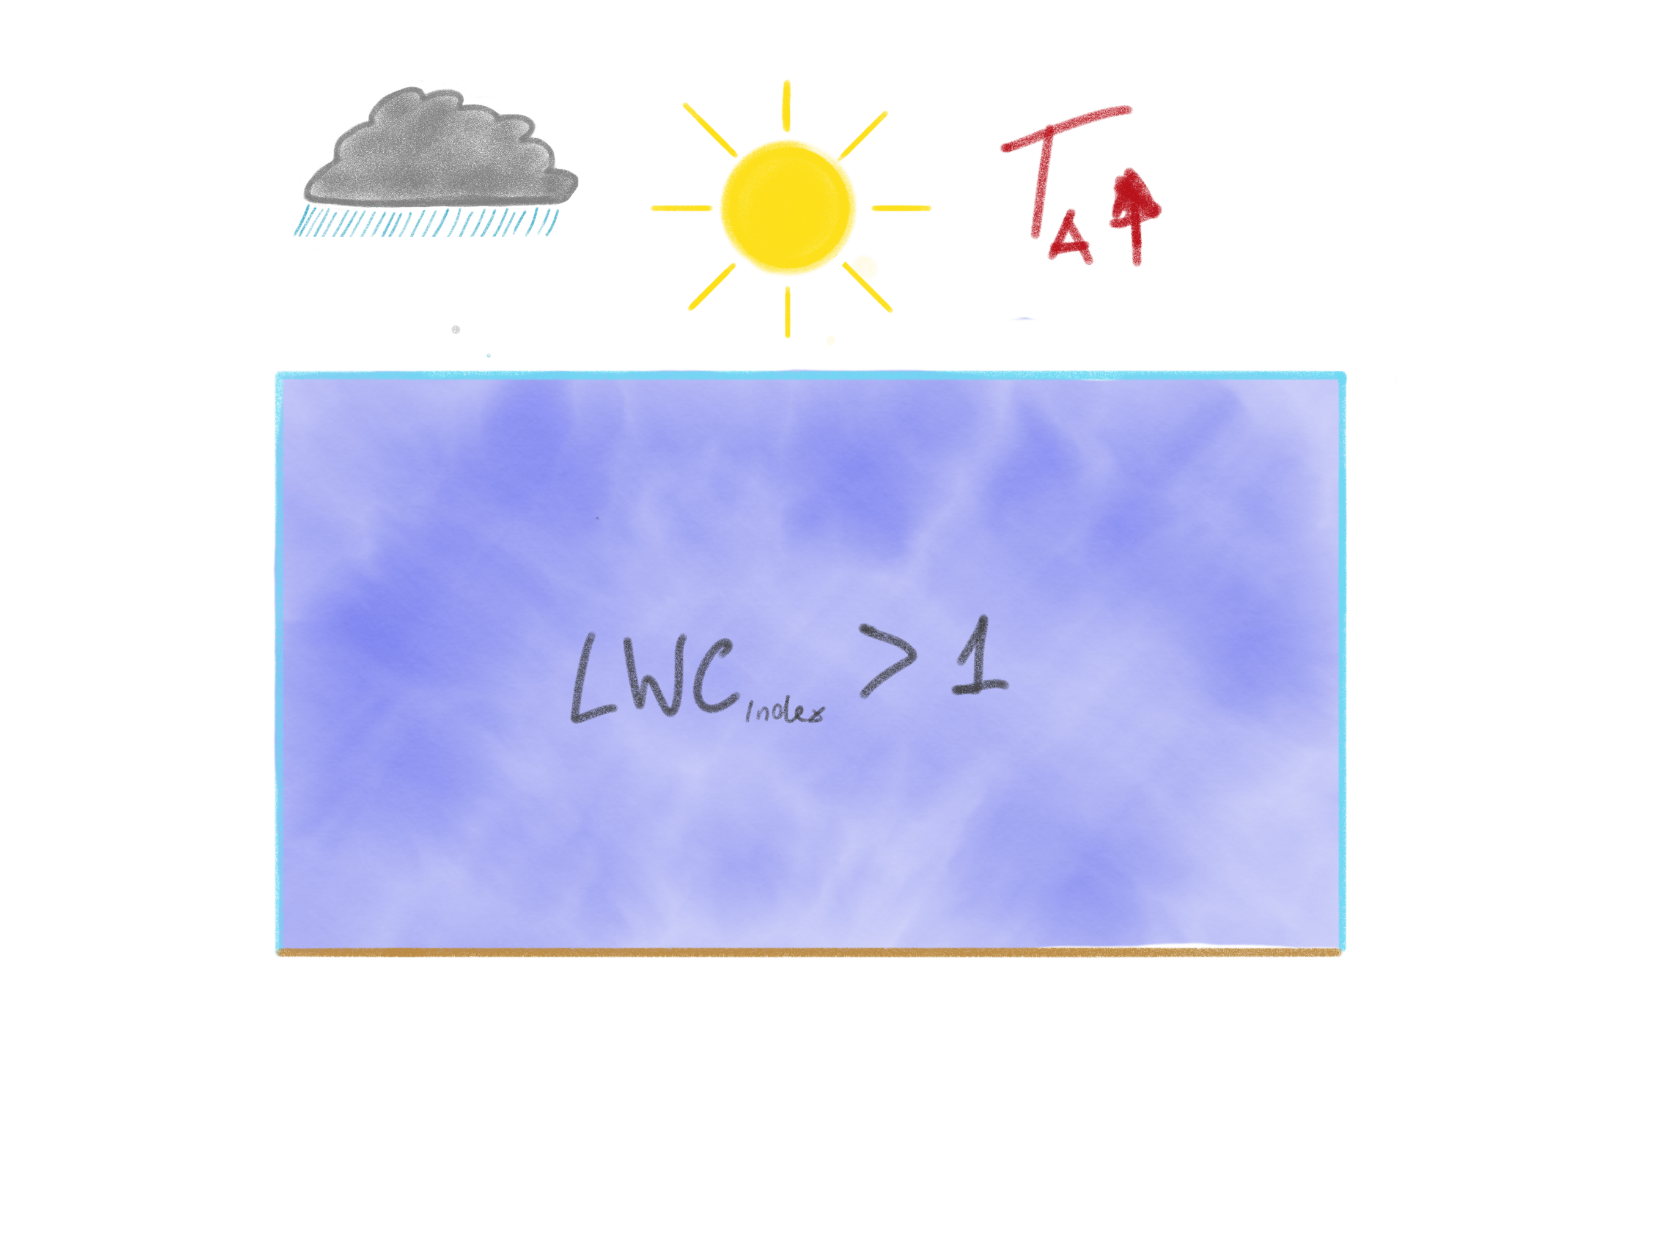 TA↑
LWCindex > 1